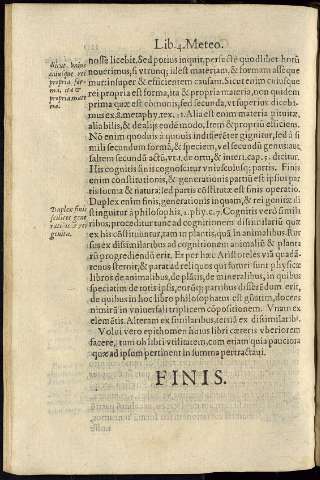 Lib.4. Meteo.
sicut vniuscuiusque rei
propria forma, ita &
propria materia.
nosse licebit. Sed potius inquit, perfectè quodlibet horũ
nouerimus, si vtrunq; idest materiam, & formam assequemur:
insuper & efficientem causam. Sicut enim cuiusque
rei propria est forma, ita & propria materia, non quidem
prima quæ est cõmunis, sed secunda, vt superius dicebimus
ex 8. metaphy. tex. 11. Alia est enim materia pituitæ,
alia bilis, & de alijs eodẽ modo, item & propriũ efficiens.
Nõ enim quoduis à quouis indifferẽter gignitur, sed à simili
secundum formã, & speciem, vel secundũ genus: aut
saltem secundũ actũ, vt. 1. de ortu, & interi. cap. 5. dicitur.
His cognitis finis cognoscitur vniuscuiusq; partis. Finis
enim constitutionis, & generationis partiũ est ipsius partis
forma & natura: sed partis cõstitutæ est finis operatio.
Duplex finis
scilicet generationis
& rei
genitæ.
Duplex enim finis, generationis inquam, & rei genitæ distinguitur
à philosophis, 2. phy. c. 7. Cognitis verò similaribus,
proceditur tunc ad cognitionem dissimilariũ quæ
ex his cõstituuntur, tam in plantis: quã in animalibus. Rursus
ex dissimilaribus ad cognitionem animaliũ & plantarũ
progrediendũ erit. Et per hæc Aristoteles viã quadãtenus
sternit; & parat ad reliquos qui futuri sunt physicæ
libros de animalibus, de plãtis, de mineralibus, in quibus
speciatim de totis ipsis, eorũq; partibus disserẽdum erit,
de quibus in hoc libro philosophatus est gustim, docens
nimirũ in vniuersali triplicem cõpositionem. Vnam ex
elemẽtis. Alteram ex similaribus, tertiã ex dissimilarib.
Volui verò epithomen huius libri cæteris vberiorem
facere, tum ob libri vtilitatem, cum etiam quia pauciora
quæ ad ipsum pertinent in summa pertractaui.
FINIS.